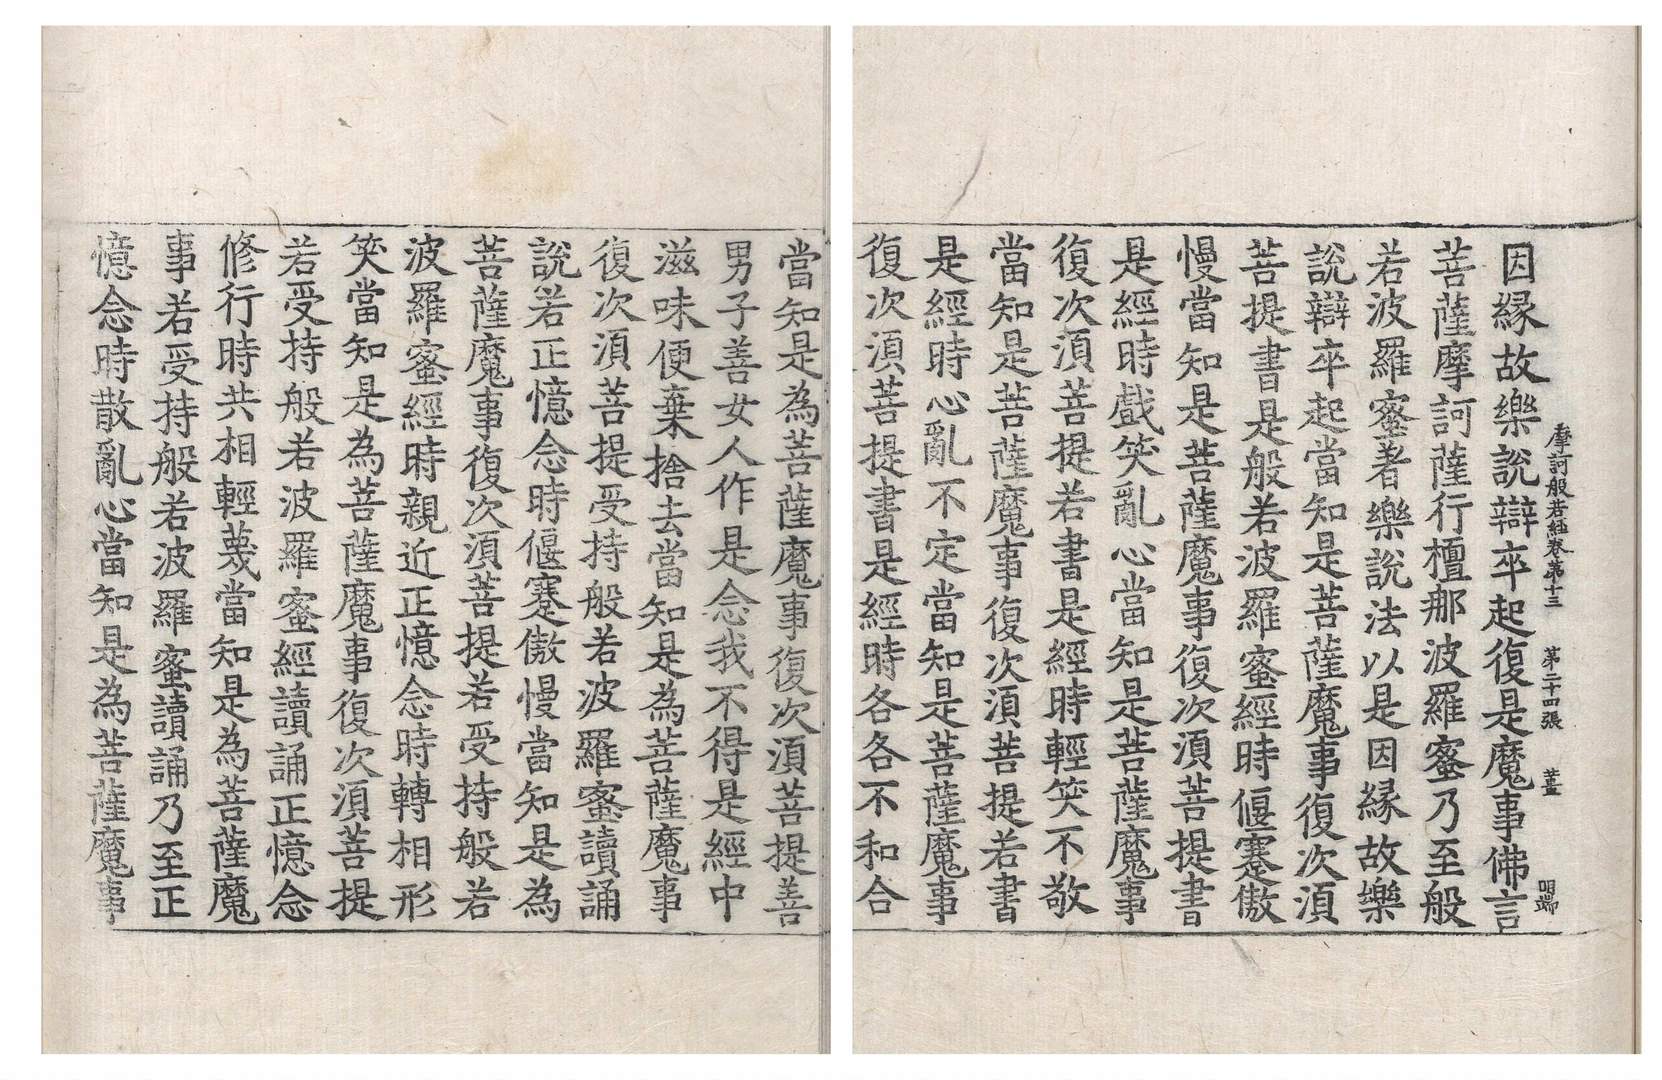 摩訶般若經卷第十三 第二十四張 薑 唄端
因緣故樂說辯卒起復是魔事佛言
菩薩摩訶薩行檀那波羅蜜乃至般
若波羅蜜著樂說法以是因緣故樂
說辯卒起當知是菩薩魔事復次須
菩提書是般若波羅蜜經時偃蹇傲
慢當知是菩薩魔事復次須菩提書
是經時戲笑亂心當知是菩薩魔事
復次須菩提若書是經時輕笑不敬
當知是菩薩魔事復次須菩提若書
是經時心亂不定當知是菩薩魔事
復次須菩提書是經時各各不和合
當知是為菩薩魔事復次須菩提善
男子善女人作是念我不得是經中
滋味便棄捨去當知是為菩薩魔事
復次須菩提受持般若波羅蜜讀誦
說若正憶念時偃蹇傲慢當知是為
菩薩魔事復次須菩提若受持般若
波羅蜜經時親近正憶念時轉相形
笑當知是為菩薩魔事復次須菩提
若受持般若波羅蜜經讀誦正憶念
修行時共相輕蔑當知是為菩薩魔
事若受持般若波羅蜜讀誦乃至正
憶念時散亂心當知是為菩薩魔事